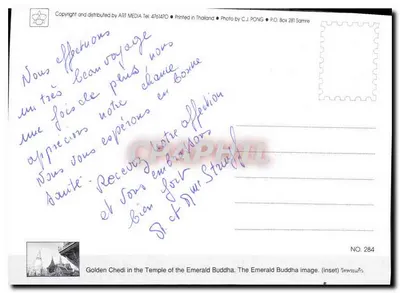 Copyright and distributed by ART MEDIA Tel. 4761470 • Printed in Thailand • Photo by C.J. PONG • P.O. Box 281 Samre
Nous effectuons
un très beau voyage
une fois de plus nous
apprécions notre chance
Nous vous espérons en bonne
santé. Recevez notre affection
et vous embrassons
bien fort
M et Mme
NO. 284
Golden Chedi in the Temple of the Emerald Buddha. The Emerald Buddha image. (Inset)